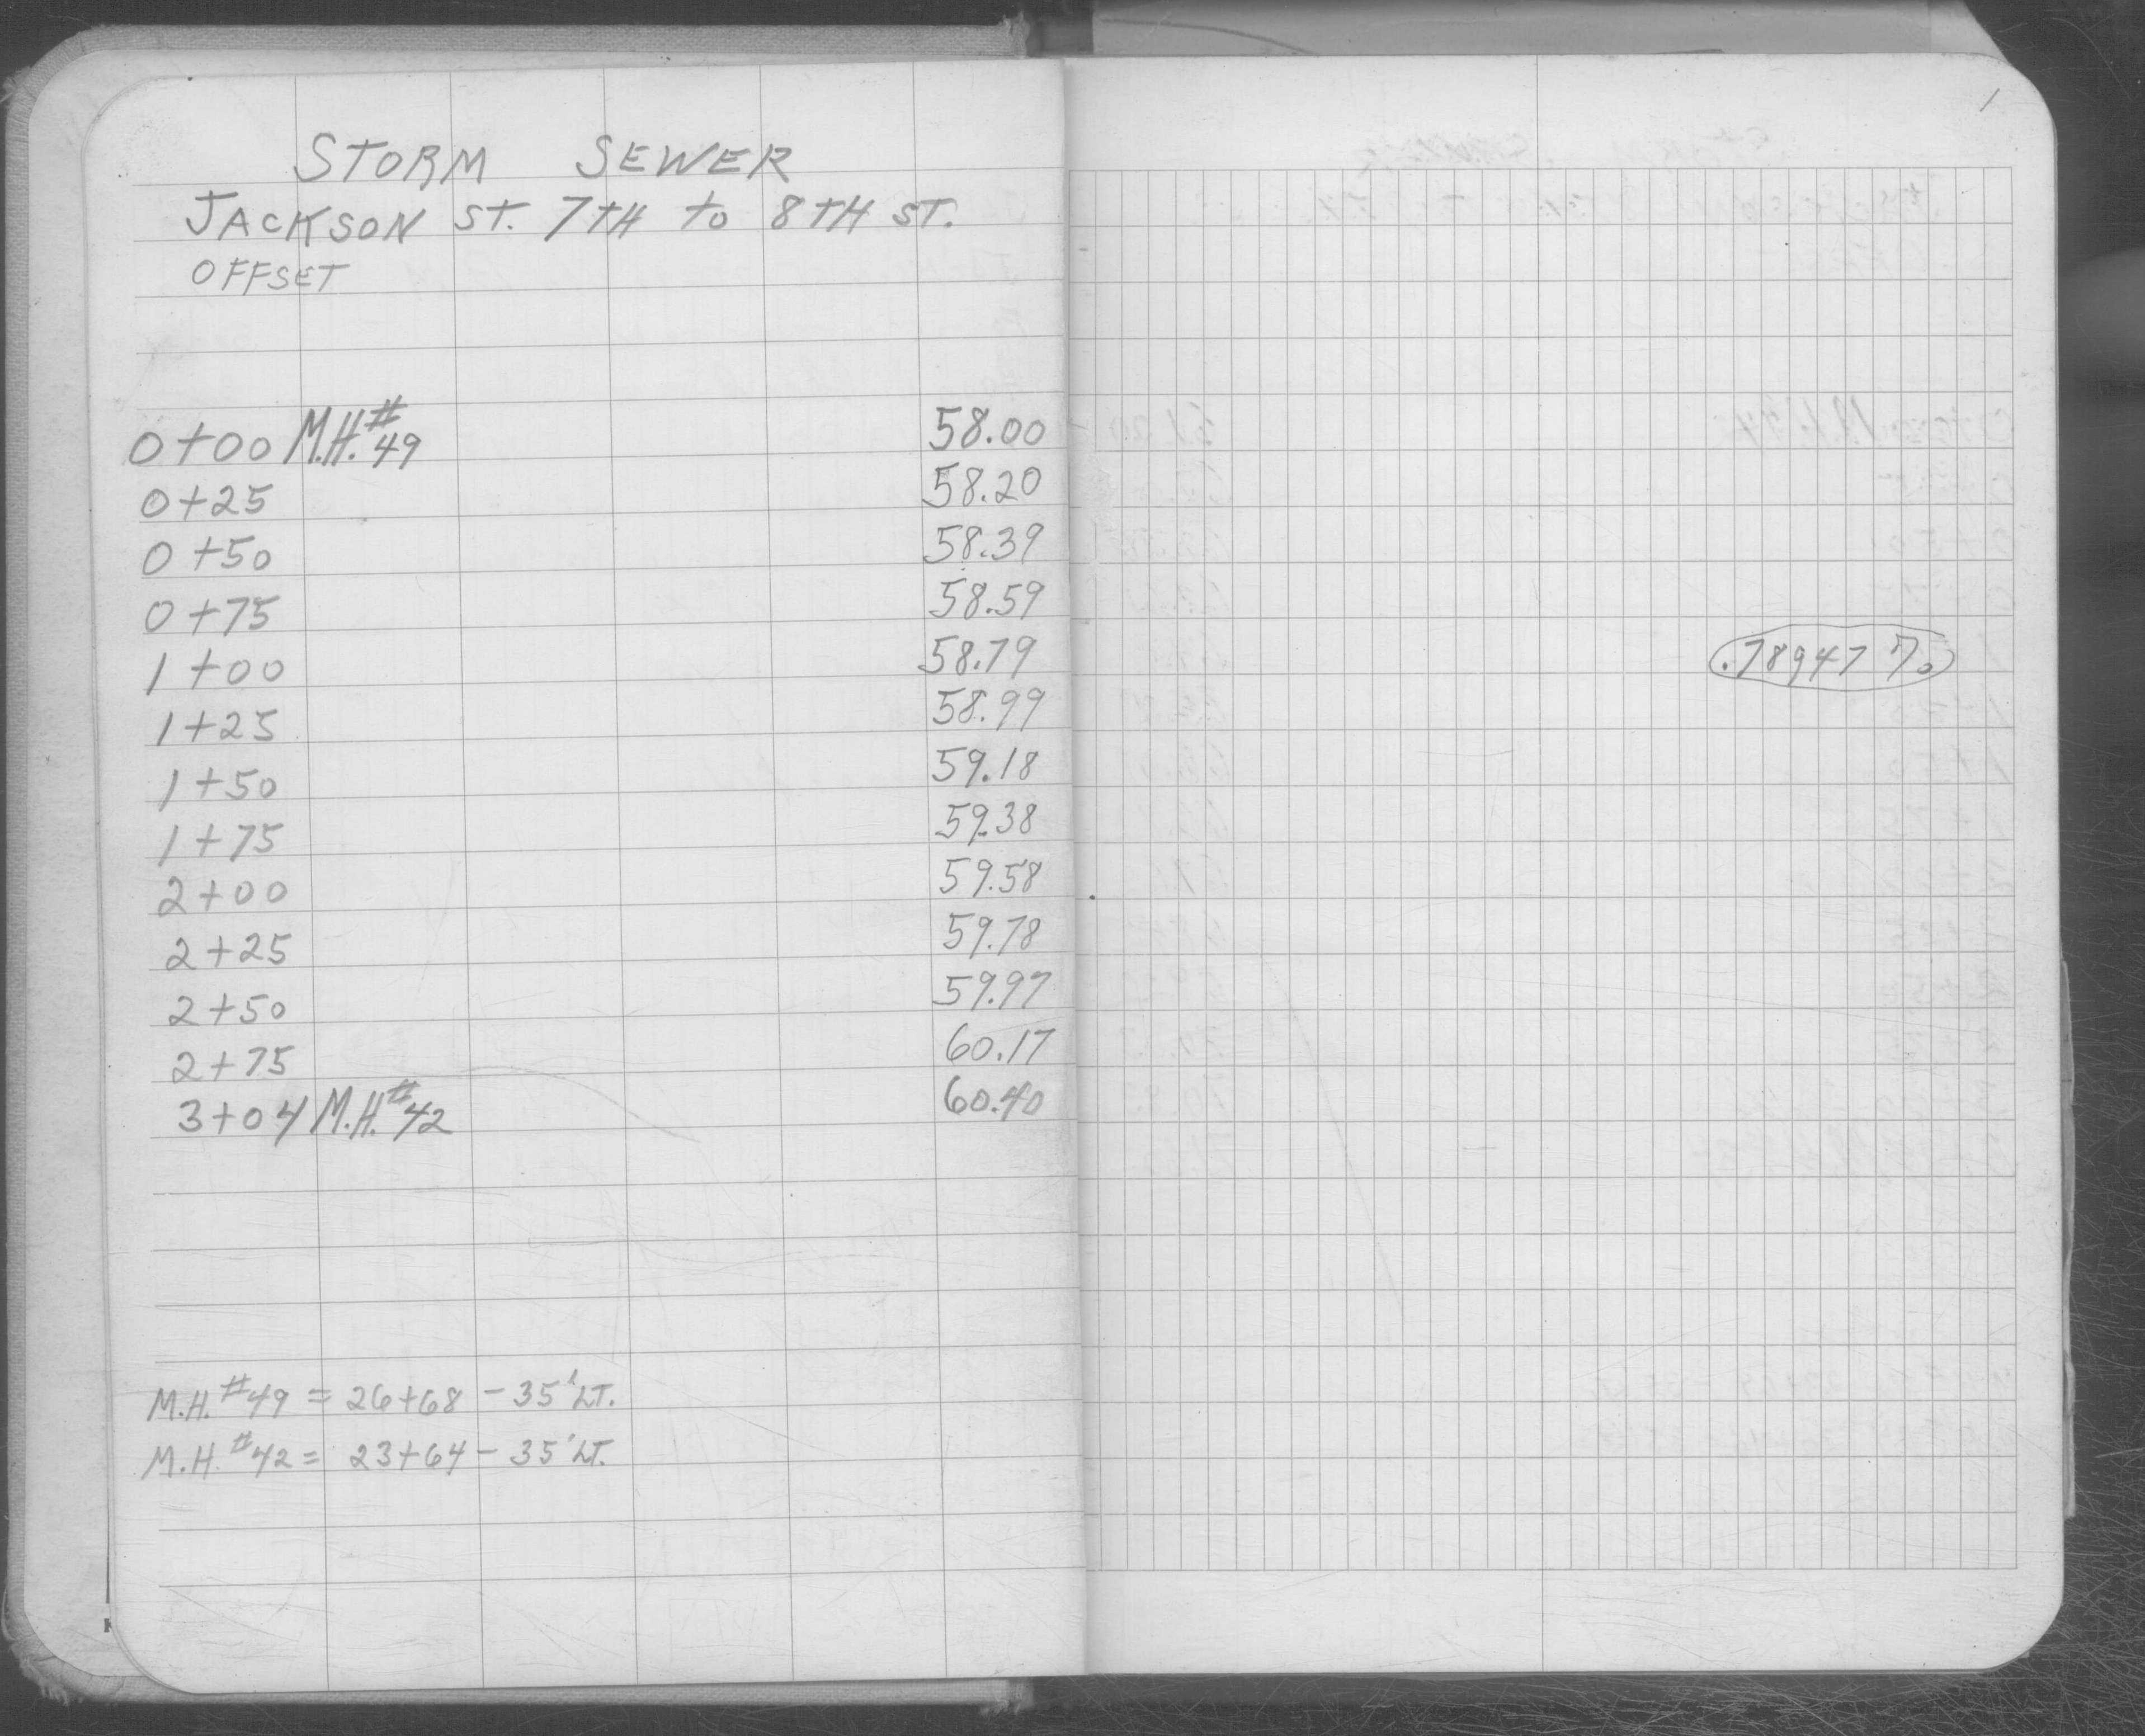 STORM SEWER
JACKSON ST. 7TH to 8TH ST.
OFFSET
0+00 M.H.#49 58.00
0+25 58.20
0+50 58.39
0+75 58.59
1+00 58.79
1+25 58.99
1+50 59.18
1+75 59.38
2+00 59.58
2+25 59.78
2+50 59.97
2+75 60.17
3+04 M.H.#42 60.40
M.H.#49 = 26+68 - 35' LT.
M.H.#42 = 23+64 - 35' LT.
1
.78947 %